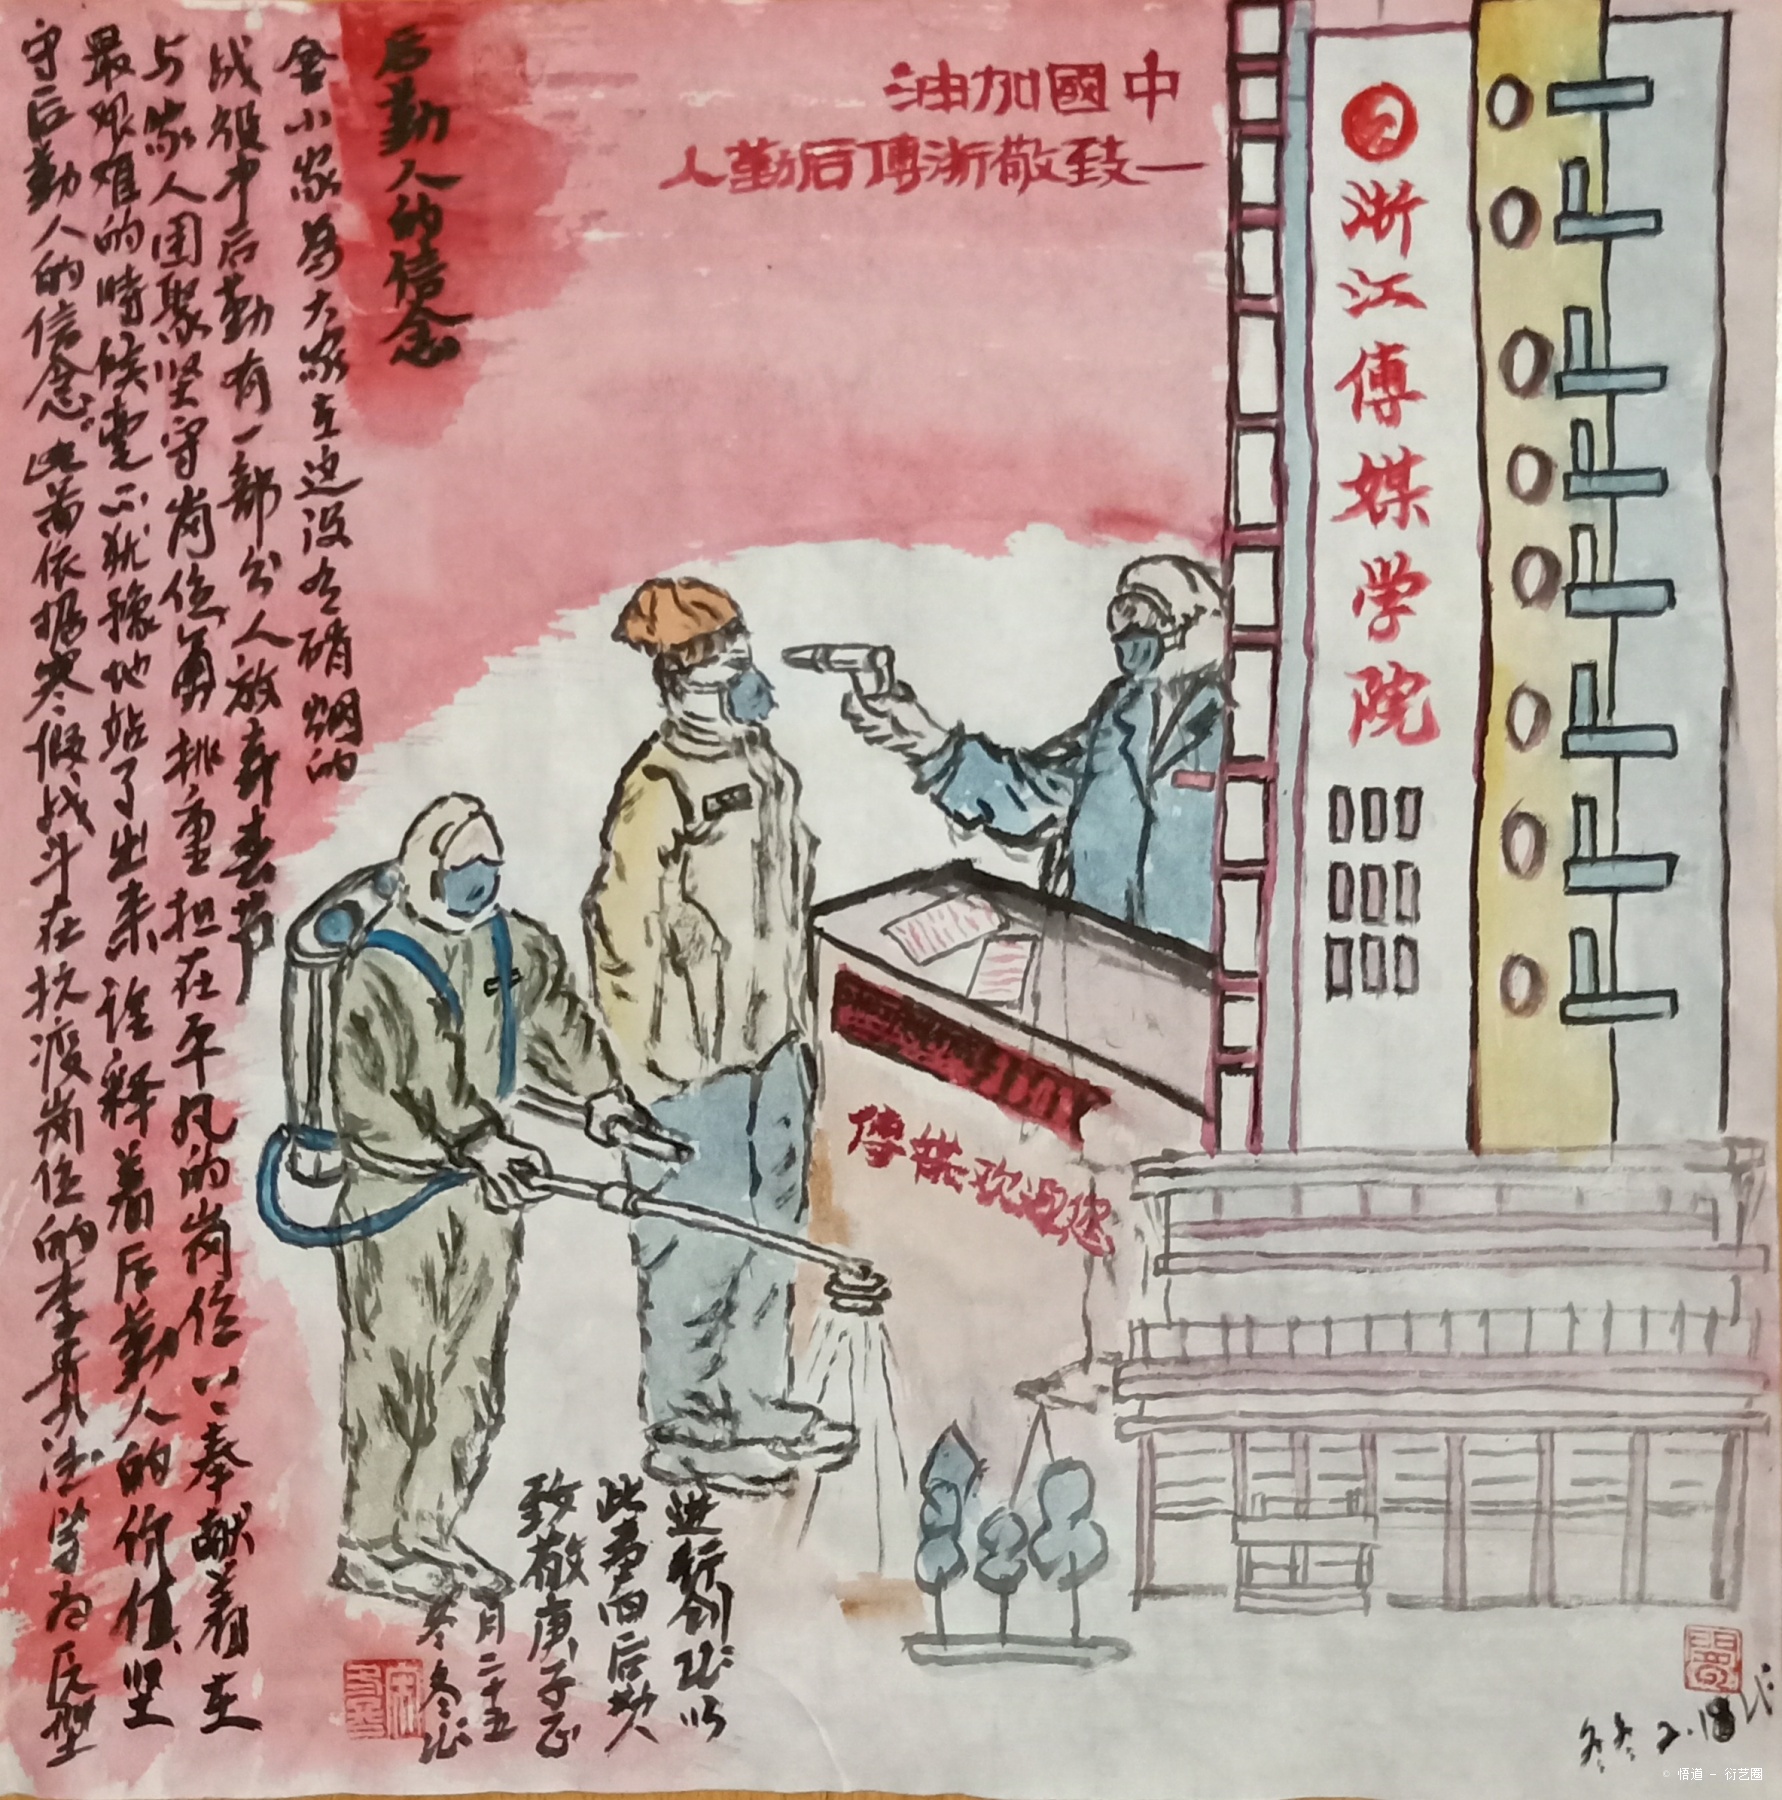 中國加油
一致敬浙傳后勤人
浙江傳媒学院
后勤人的信念
舍小家為大家在这没有硝烟的
战役中后勤有一部分人放弃春节
与家人团聚坚守岗位勇挑重担在平凡的岗位以奉献着在
最艰难的時候毫不犹豫地站了出来诠释着后勤人的价值坚
守后勤人的信念。此画依据寒假战斗在抗疫岗位的李
法学为原型
进行创作以
此画向后勤人
致敬庚子正
月二十五
冬冬作
傳媒欢迎您
冬冬 2.18作
© 悟道 - 衍艺圈